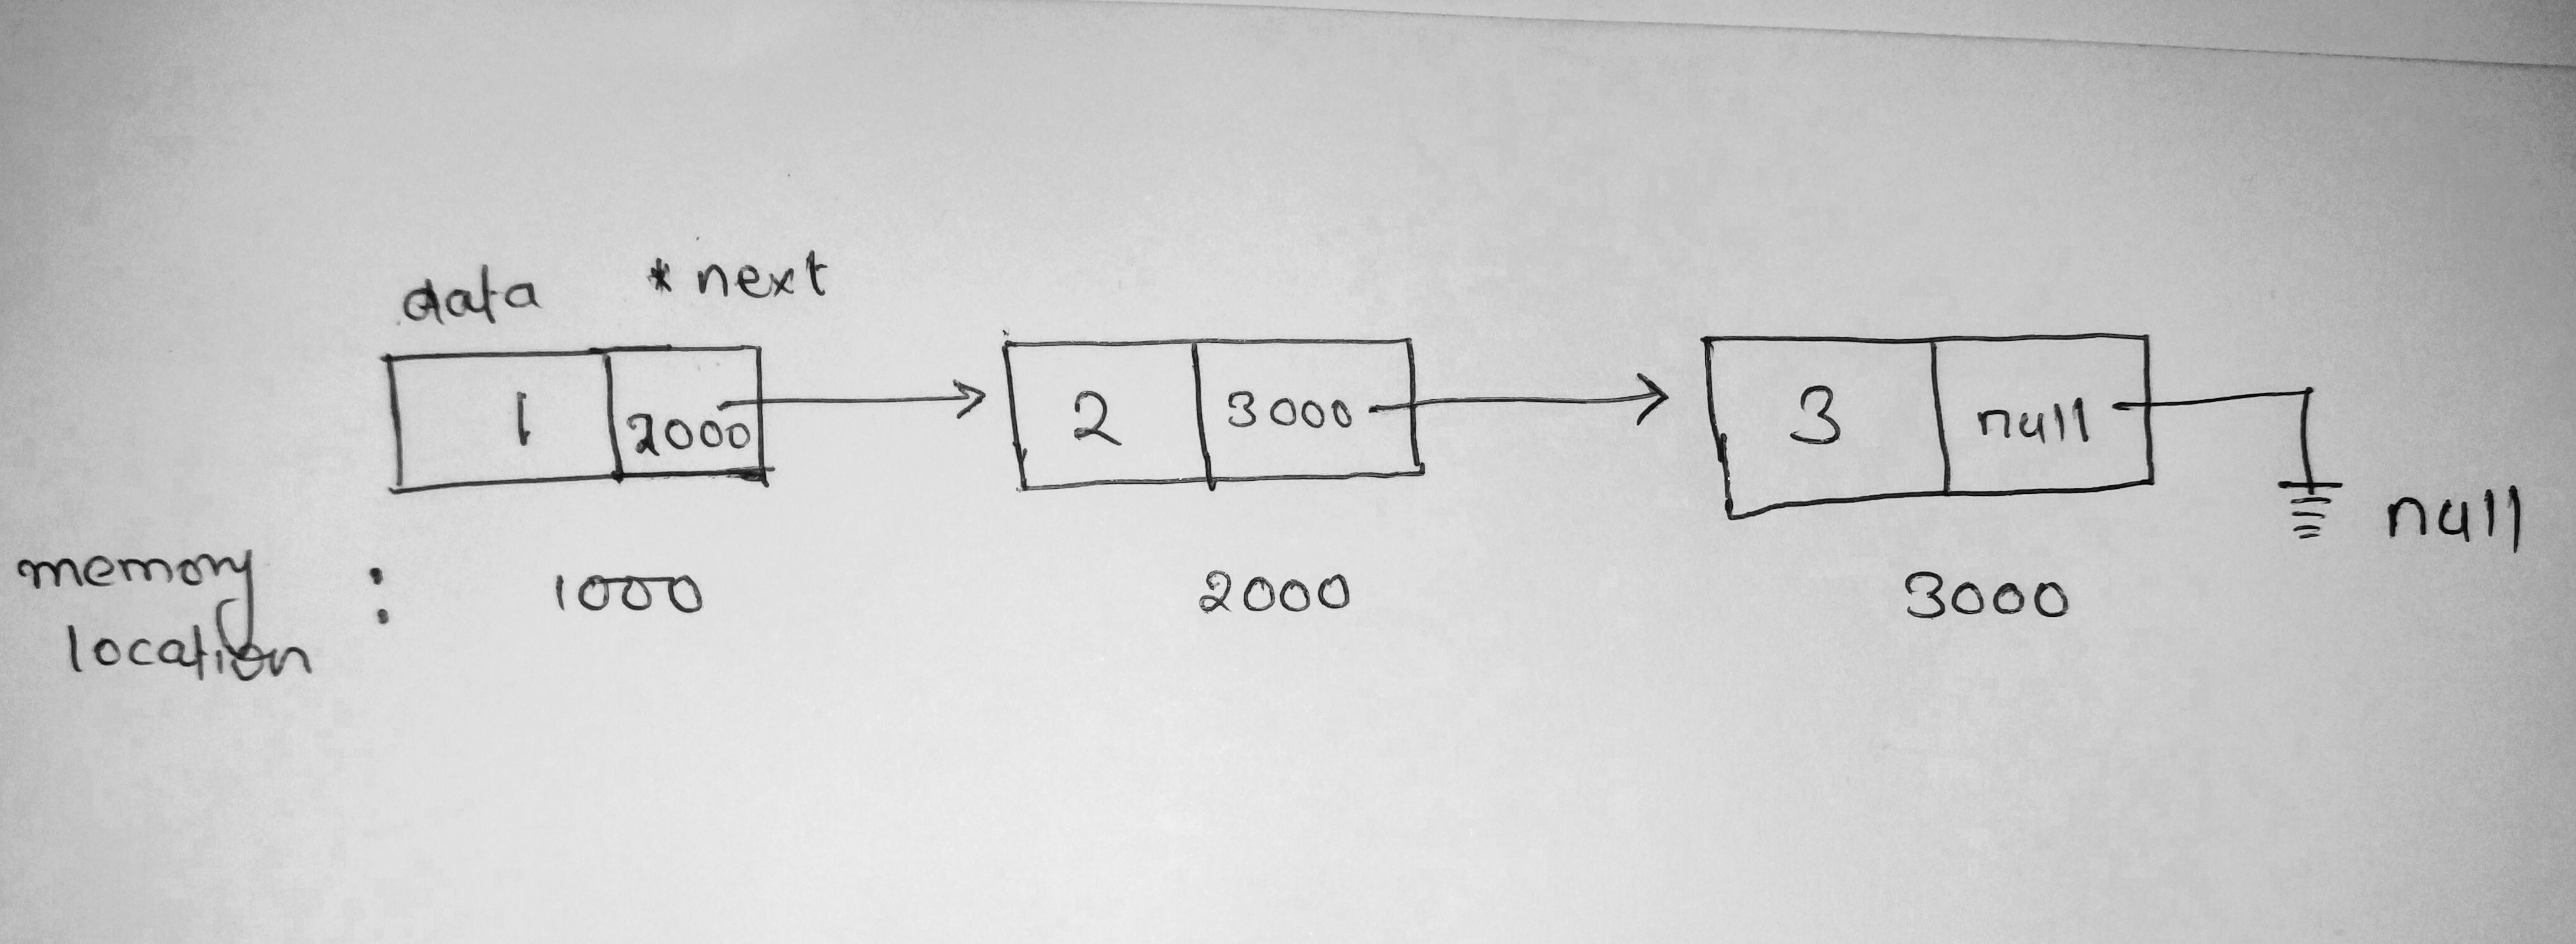 data *next
1 2000 2 3000 3 null
null
memory location : 1000 2000 3000